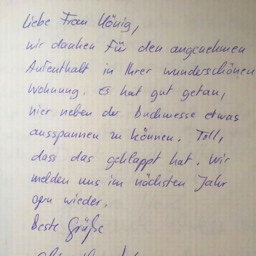 Liebe Frau König,
wir danken für den angenehmen
Aufenthalt in Ihrer wunderschönen
Wohnung. Es hat gut getan,
hier neben der Buchmesse etwas
ausspannen zu können. Toll,
dass das geklappt hat. Wir
melden uns im nächsten Jahr
gern wieder.
Beste Grüße